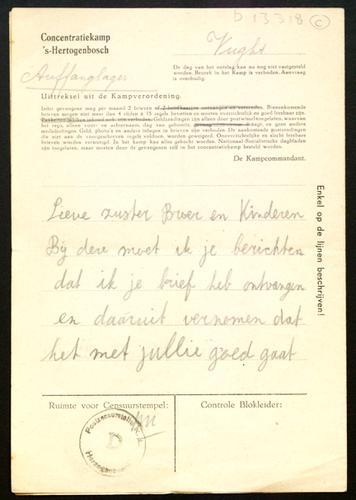 b 13318 C
Concentratiekamp
's-Hertogenbosch
Vught
Auffanglager
De dag van het ontslag kan nu nog niet vastgesteld
worden. Bezoek in het Kamp is verboden. Aanvraag
is overbodig.
Uittreksel uit de Kampverordening.
Ieder gevangene mag per maand 2 brieven of 2 briefkaarten ontvangen en verzenden. Binnenkomende
brieven mogen niet meer dan 4 zijden à 15 regels bevatten en moeten overzichtelijk en goed leesbaar zijn.
Geldzendingen zijn alleen door postwissel toegelaten, waarvan
het regu, alleen voor- en achternaam, dag van geboorte,
mededeelingen. Geld, photo's en andere inlagen in brieven zijn verboden. De aankomende postzendingen
die niet aan de voorgeschreven regels voldoen, worden geweigerd. Onoverzichtelijke en slecht
leesbare brieven worden vernietigd. In het kamp kan alles gekocht worden. Nationaal-Socialistische dagbladen
zijn toegelaten, maar moeten door de gevangene zelf in het concentratiekamp besteld worden.
De Kampcommandant.
Enkel op de lijnen beschrijven!
Lieve zuster Broer en Kinderen
Bij deze moet ik je berichten
dat ik je brief heb ontvangen
en daaruit vernomen dat
het met jullie goed gaat
Ruimte voor Censuurstempel:
Controle Blokleider:
Postzensurstelle
D
Herzogenbusch